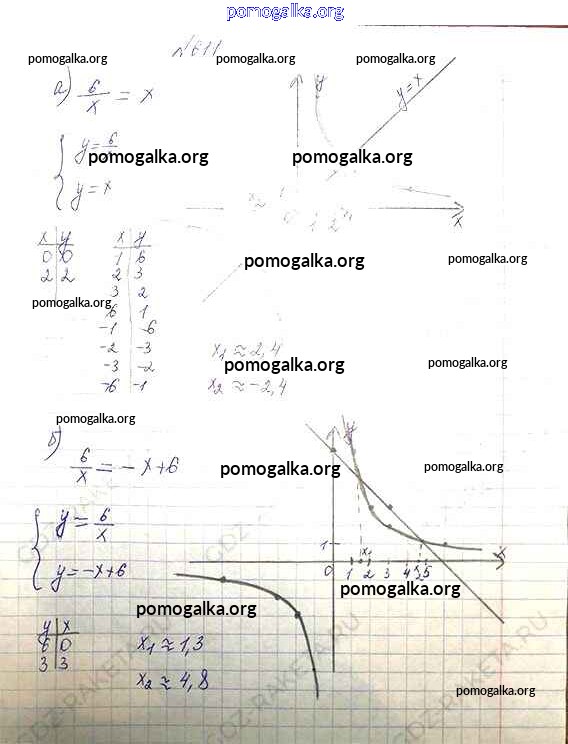 pomogalka.org
№611
pomogalka.org pomogalka.org pomogalka.org
а) 6/x = x
y
y=x
y=6/
pomogalka.org pomogalka.org
y=x
x
1 2
x y
0 0
2 2
x y
1 6
2 3
3 2
6 1
-1 -6
-2 -3
-3 -2
-6 -1
pomogalka.org pomogalka.org
pomogalka.org
x₁ ≈ 2,4
pomogalka.org pomogalka.org
x₂ ≈ -2,4
pomogalka.org
б) 6/x = -x+6
y
pomogalka.org pomogalka.org
y = 6/x
y = -x+6
1
x
0 1 x₁ 2 3 4 5
pomogalka.org
pomogalka.org
y x
6 0
3 3
x₁ ≈ 1,3
x₂ ≈ 4,8
pomogalka.org
GDZ-RAKETA.RU
GDZ-RAKETA.RU